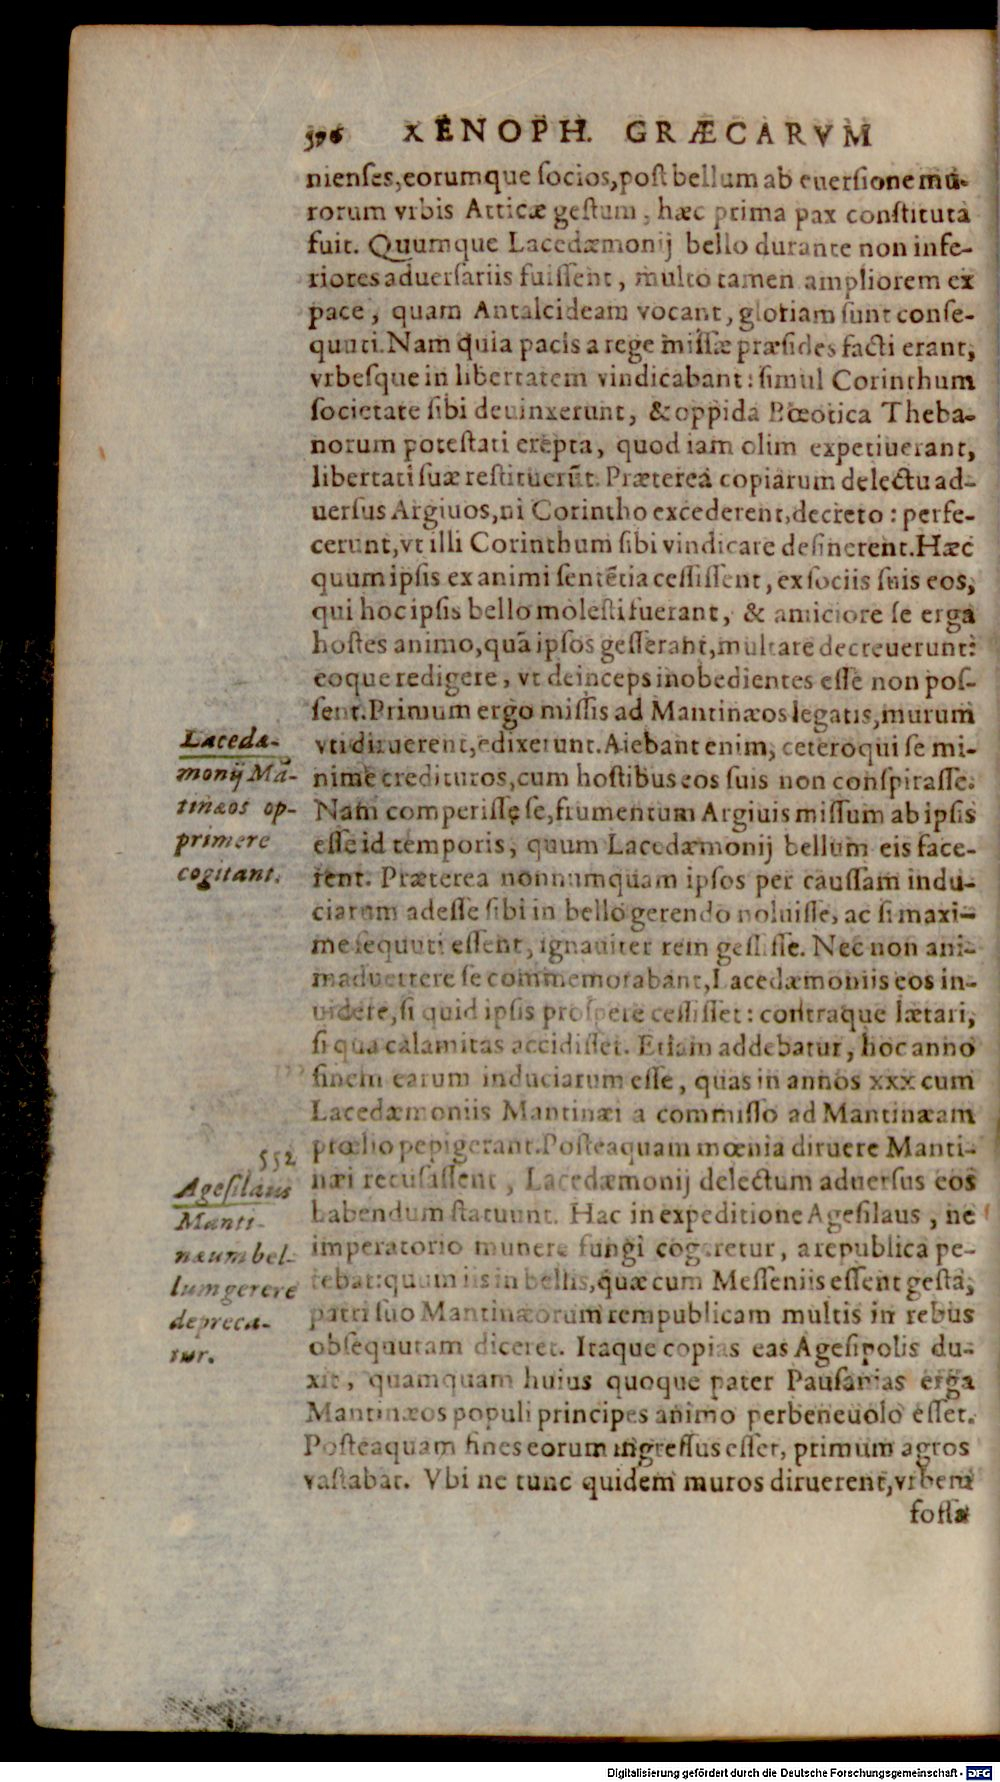 396 XENOPH. GRÆCARVM
nienses,eorumque socios,post bellum ab euersione mu-
rorum vrbis Atticæ gestum, hæc prima pax constituta
fuit. Quumque Lacedæmonij bello durante non infe-
riores aduersariis fuissent, multo tamen ampliorem ex
pace, quam Antalcideam vocant, gloriam sunt conse-
quuti. Nam quia pacis a rege missæ præsides facti erant,
vrbesque in libertatem vindicabant: simul Corinthum
societate sibi deuinxerunt, & oppida Bœotica Theba-
norum potestati erepta, quod iam olim expetiuerant,
libertati suæ restituerūt. Præterea copiarum delectu ad-
uersus Argiuos,ni Corintho excederent,decreto: perfe-
cerunt,vt illi Corinthum sibi vindicare desinerent. Hæc
quum ipsis ex animi sentētia cessissent, ex sociis suis eos,
qui hoc ipsis bello molesti fuerant, & amiciore se erga
hostes animo,quā ipsos gesserant,multare decreuerunt:
eoque redigere, vt deinceps inobedientes esse non pos-
sent. Primum ergo missis ad Mantinæos legatis,murum
vti diruerent,edixerunt. Aiebant enim, ceteroqui se mi-
nime credituros,cum hostibus eos suis non conspirasse.
Nam comperisse se,frumentum Argiuis missum ab ipsis
esse id temporis, quum Lacedæmonij bellum eis face-
rent. Præterea nonnumquam ipsos per caussam indu-
ciarum adesse sibi in bello gerendo noluisse, ac si maxi-
me sequuti essent, ignauiter rem gessisse. Nec non ani-
maduertere se commemorabant, Lacedæmoniis eos in-
uidere,si quid ipsis prospere cessisset: contraque lætari,
si qua calamitas accidisset. Etiam addebatur, hoc anno
finem earum induciarum esse, quas in annos xxx cum
Lacedæmoniis Mantinæi a commisso ad Mantinæam
prœlio pepigerant. Posteaquam mœnia diruere Manti-
næi recusassent, Lacedæmonij delectum aduersus eos
habendum statuunt. Hac in expeditione Agesilaus, ne
imperatorio munere fungi cogeretur, a republica pe-
tebat: quum iis in bellis,quæ cum Messeniis essent gesta,
patri suo Mantinæorum rempublicam multis in rebus
obsequutam diceret. Itaque copias eas Agesipolis du-
xit, quamquam huius quoque pater Pausanias erga
Mantinæos populi principes animo perbeneuolo esset.
Posteaquam fines eorum ingressus esset, primum agros
vastabat. Vbi ne tunc quidem muros diruerent,vrbem
fossa
Lacedæ-
monij Mā-
tinæos op-
primere
cogitant.
552
Agesilaus
Manti-
næum bel-
lum gerere
depreca-
tur.
Digitalisierung gefördert durch die Deutsche Forschungsgemeinschaft - DFG